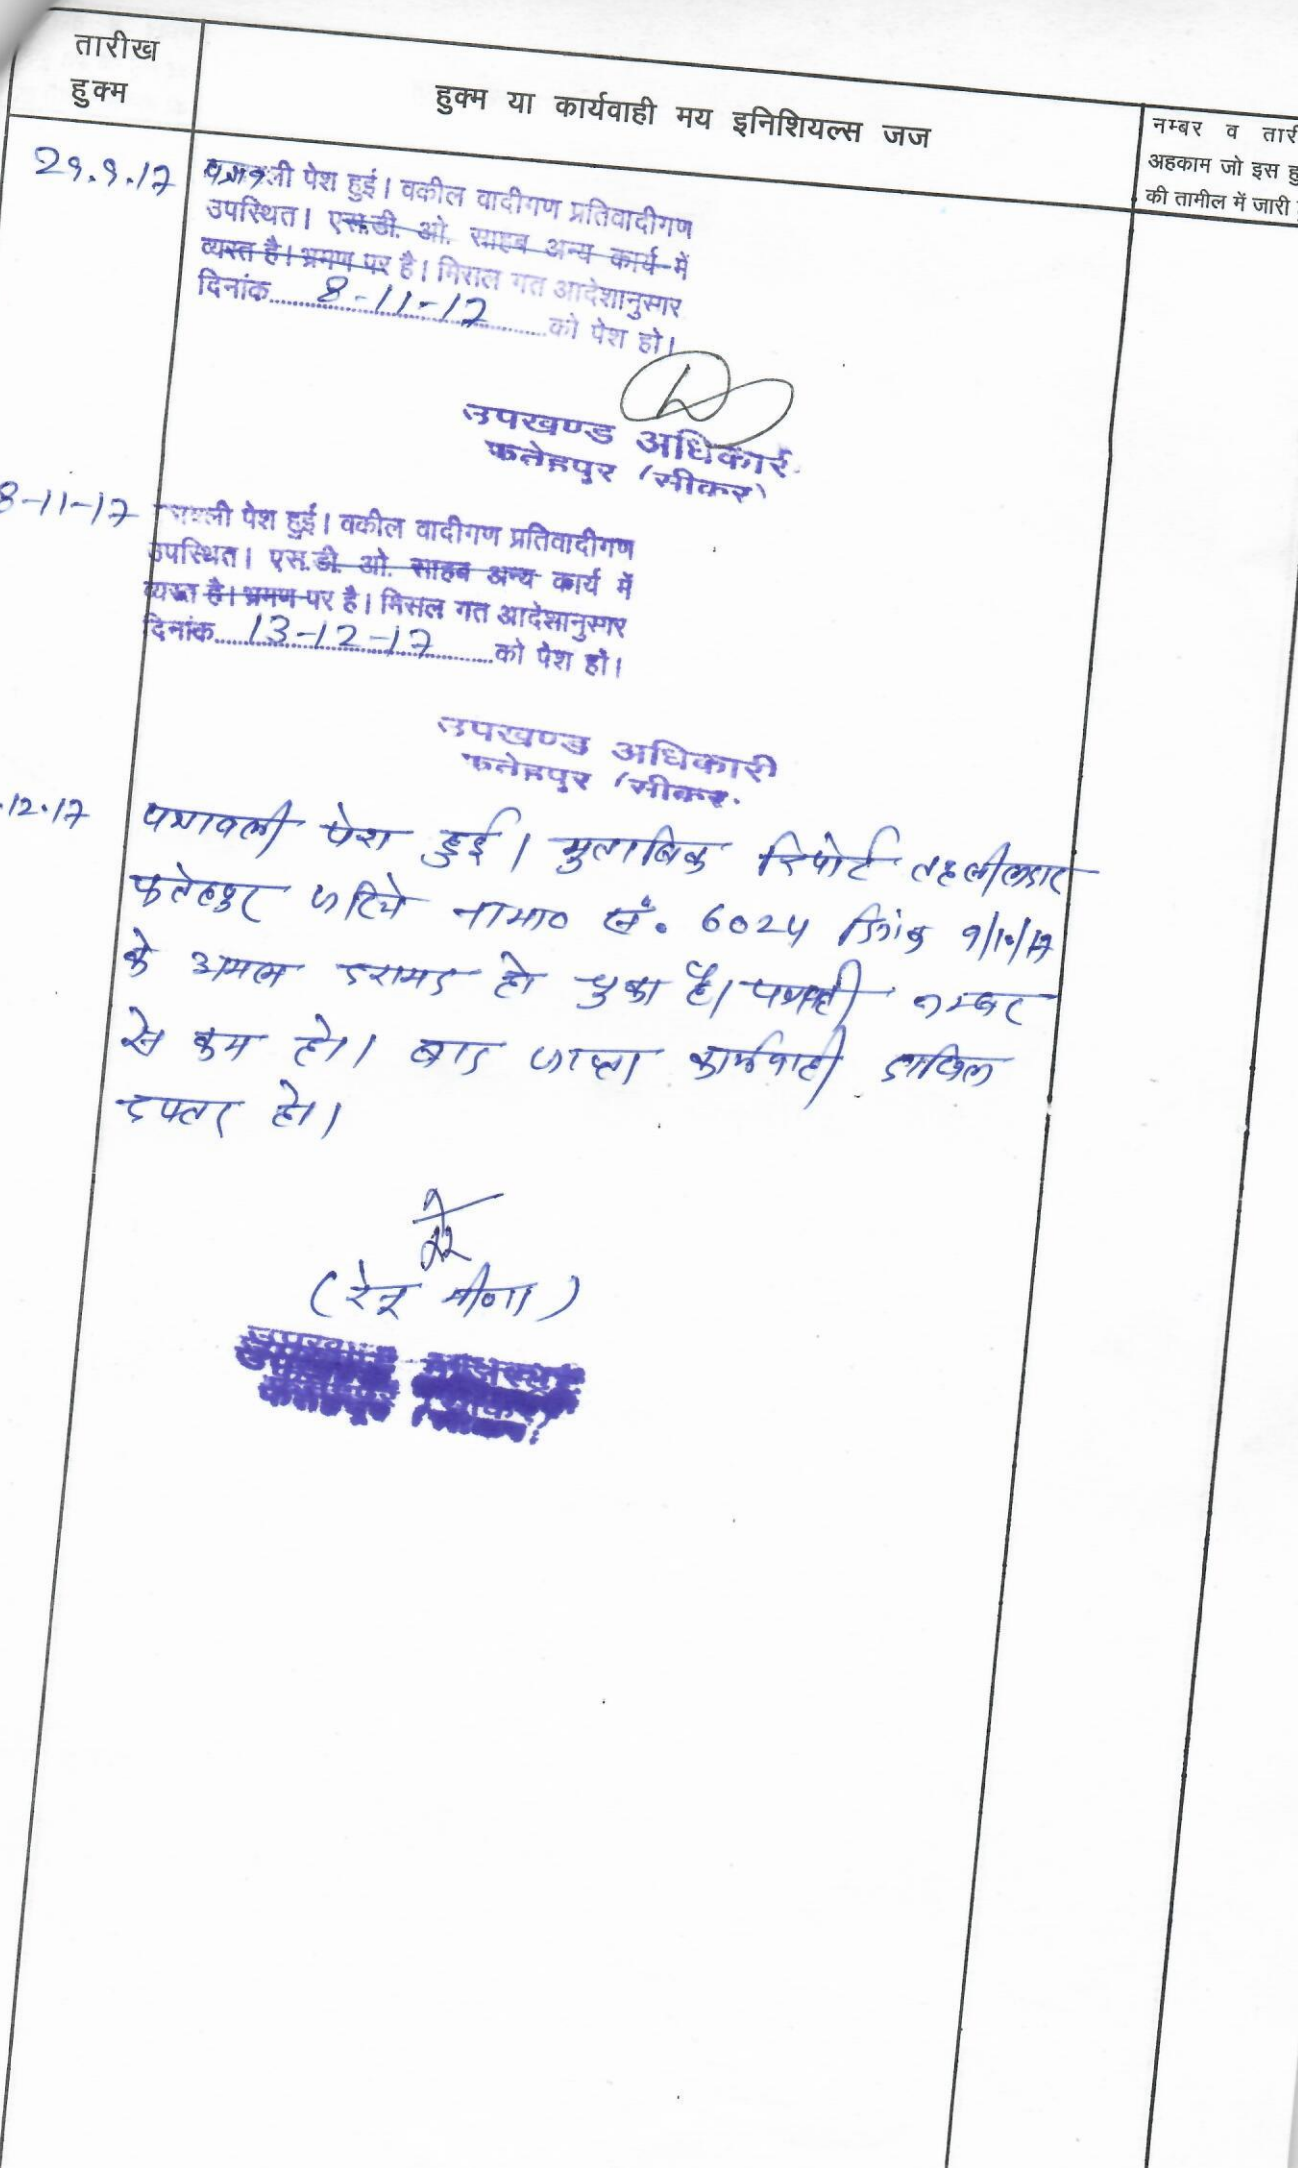 तारीख
हुक्म
हुक्म या कार्यवाही मय इनिशियल्स जज
नम्बर व तारी
अहकाम जो इस हु
की तामील में जारी
29.9.17
पत्रावली पेश हुई। वकील वादीगण प्रतिवादीगण
उपस्थित। एस.डी. ओ. साहब अन्य कार्य में
व्यस्त है। भ्रमण पर है। मिसल गत आदेशानुसार
दिनांक 8-11-17 को पेश हो।
उपखण्ड अधिकारी
फतेहपुर (सीकर)
8-11-17
वली पेश हुई। वकील वादीगण प्रतिवादीगण
उपस्थित। एस.डी. ओ. साहब अन्य कार्य में
व्यस्त है। भ्रमण पर है। मिसल गत आदेशानुसार
दिनांक 13-12-17 को पेश हो।
उपखण्ड अधिकारी
फतेहपुर (सीकर
.12.17
पत्रावली पेश हुई। मुताबिक रिपोर्ट तहसीलदार
फतेहपुर जरिये नामा० सं. 6024 दिनांक 9/10/17
के अमल दरामद हो चुका है। पत्रावली नम्बर
से कम हो। बाद जाब्ता कार्यवाही दाखिल
दफ्तर हो।
(रेनू मीणा)